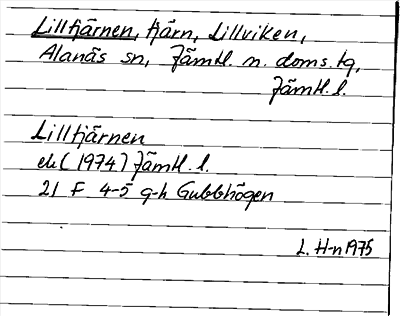 Lilltjärnen, tjärn, Lillviken,
Alanäs sn, Jämtl. n. doms.tg,
Jämtl. l.
Lilltjärnen
ek (1974) Jämtl. l.
21 F 4-5 g-h Gubbhögen
L. H-n 1975